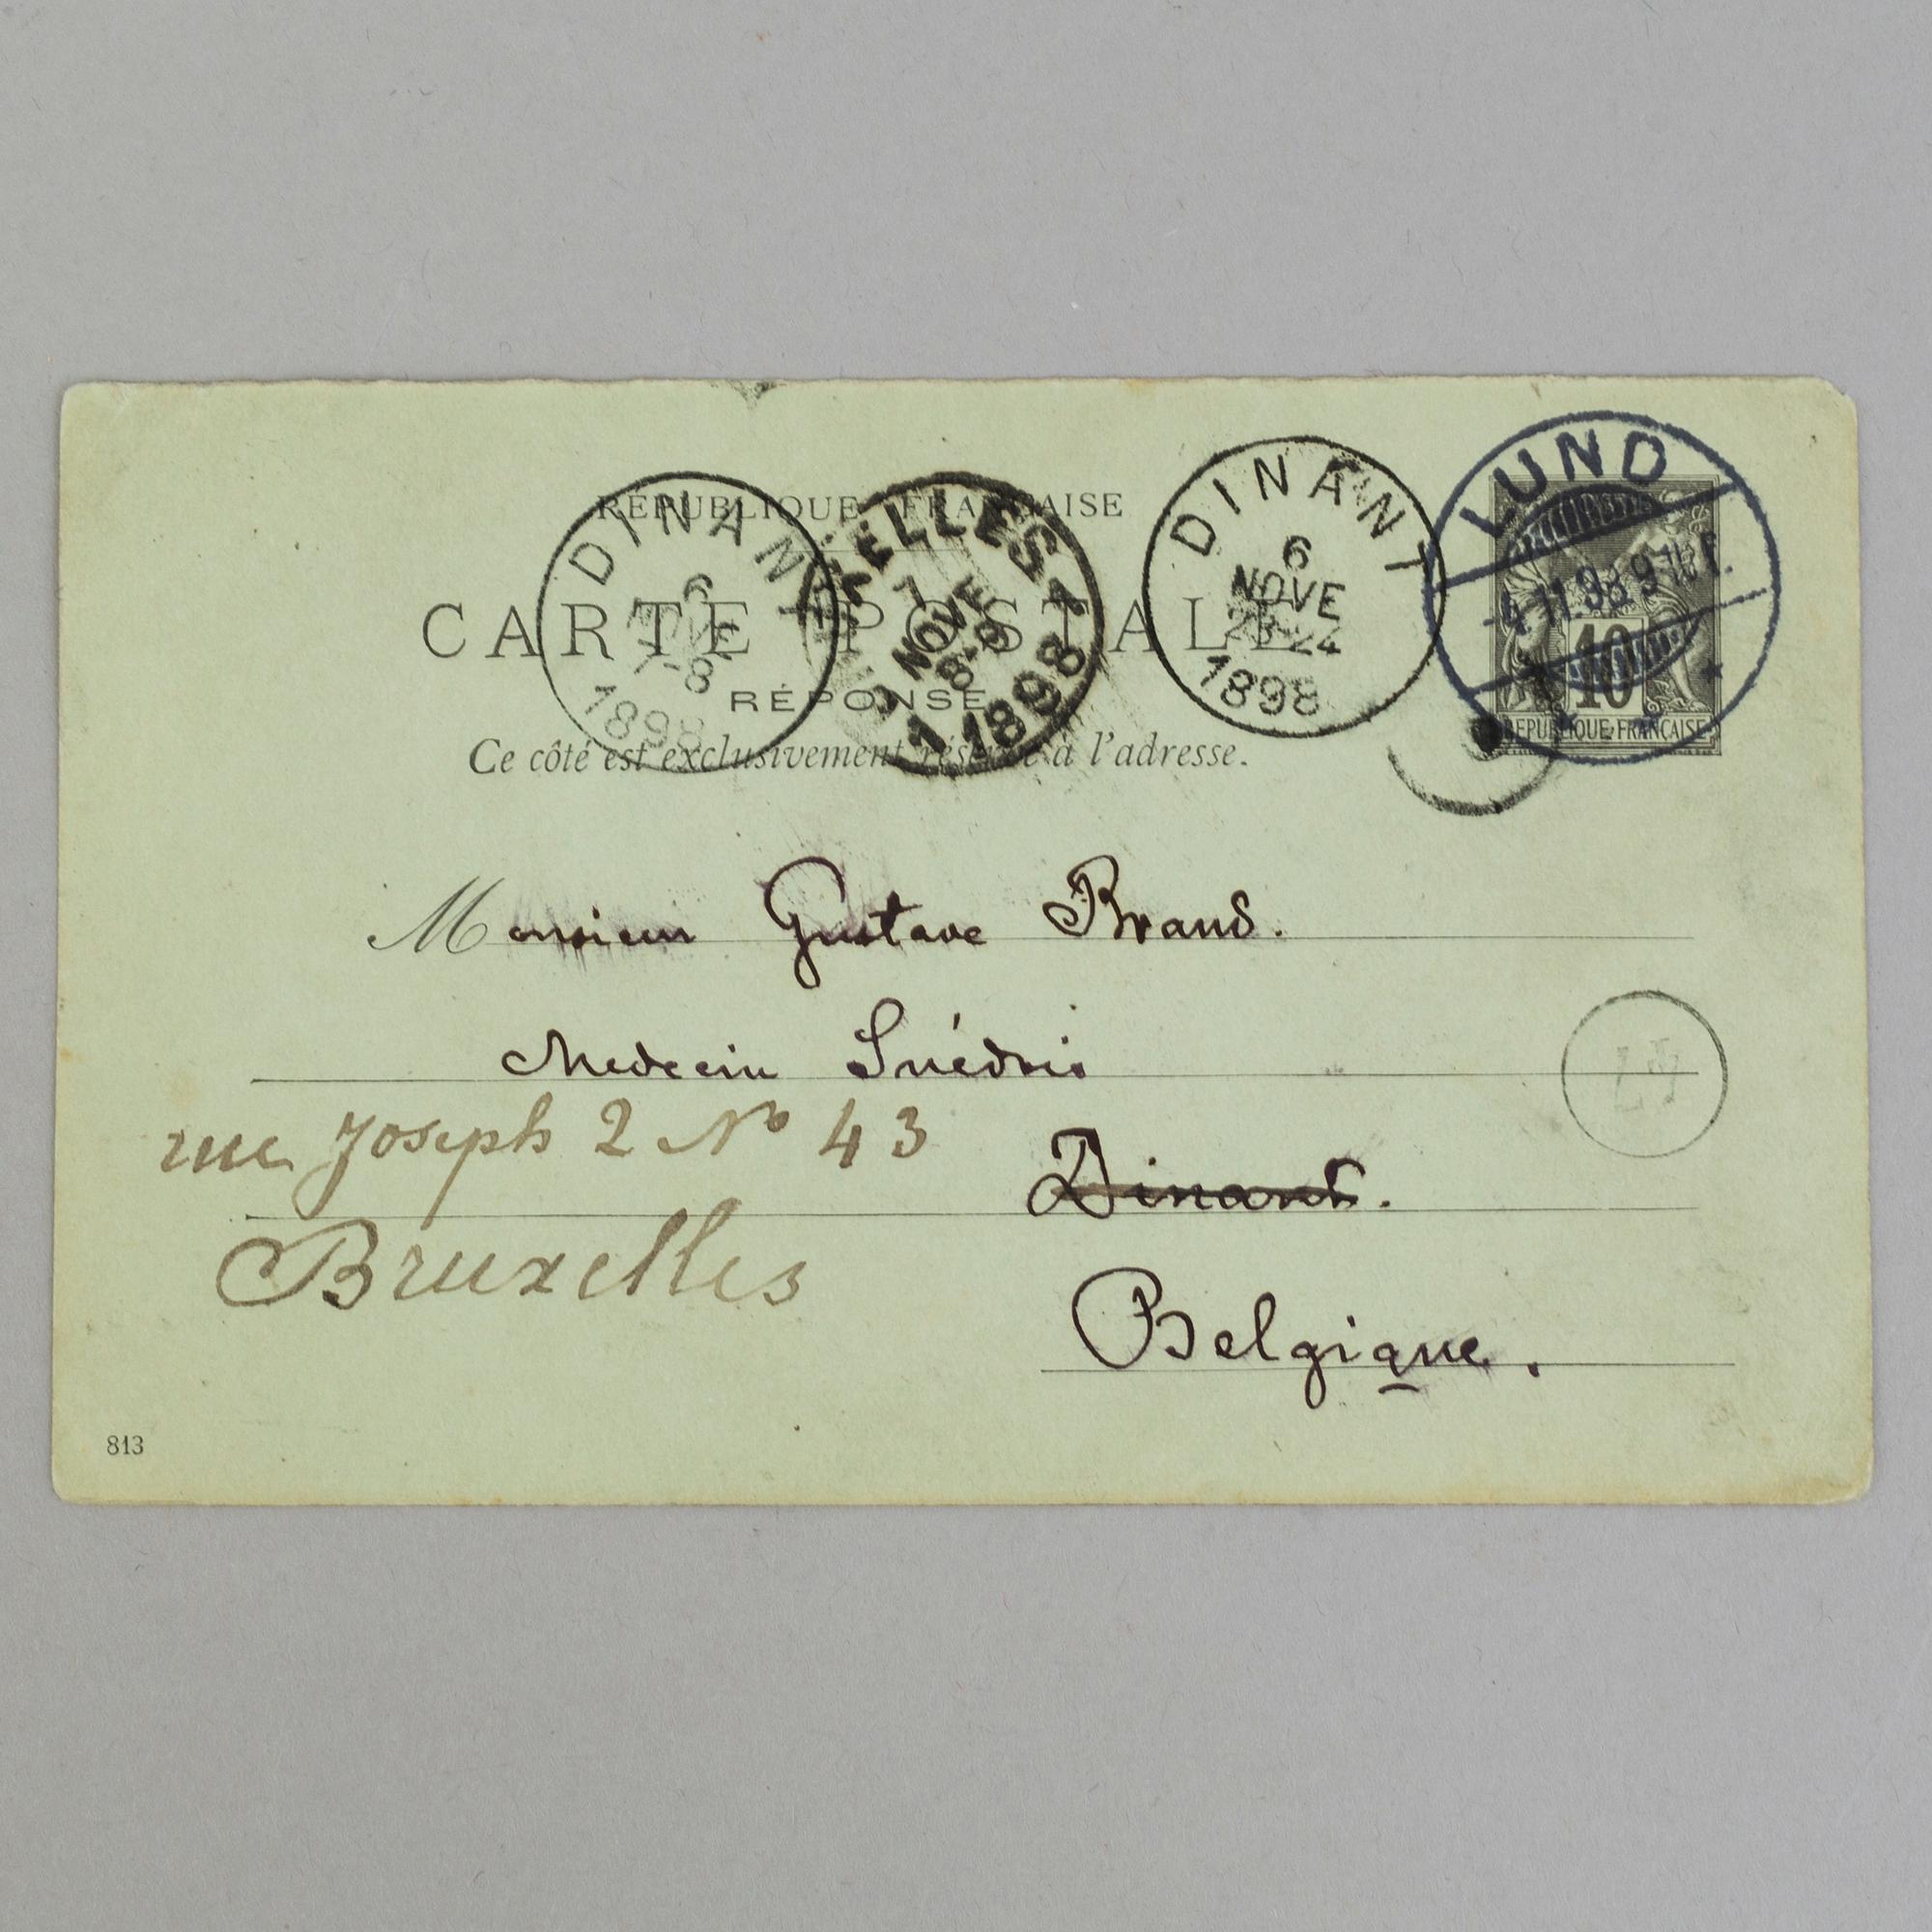 RÉPUBLIQUE FRANÇAISE
CARTE POSTALE
RÉPONSE
Ce côté est exclusivement réservé à l'adresse.
DINANT
6
NOVE
7-8
1898
IXELLES
7
NOVE
8-9
1898
1
DINANT
6
NOVE
23-24
1898
LUND
-4.11.98 9 T.F.
10
REPUBLIQUE FRANÇAISE
Monsieur Gustave Brand.
Medecin Suédois
rue Joseph 2 No 43
Dinant.
Bruxelles
Belgique.
813